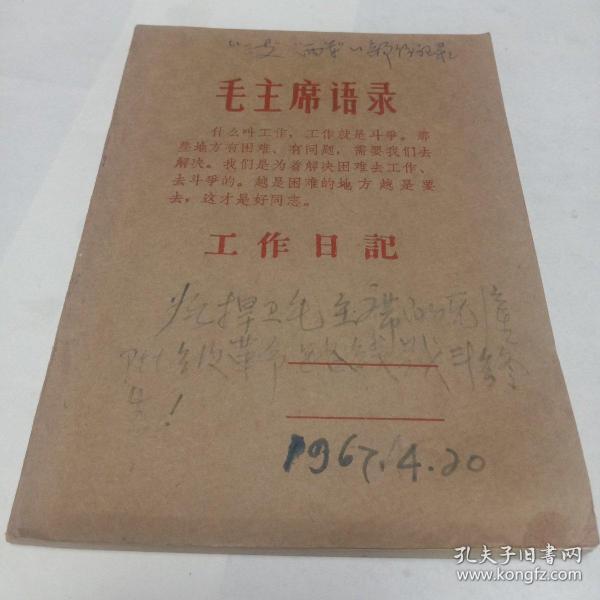 毛主席语录
什么叫工作，工作就是斗爭。那
些地方有困难、有问题，需要我们去
解决。我们是为着解决困难去工作、
去斗爭的。越是困难的地方越是要
去，这才是好同志。
工作日記
捍卫毛主席的无产
阶级革命路线战斗终
生！
1967.4.20
孔夫子旧书网
www.kongfz.com